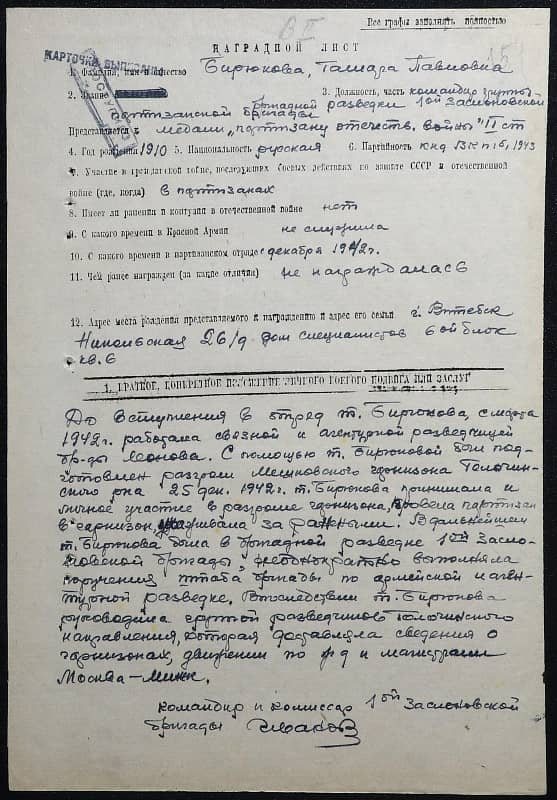 Все графы заполнять полностью
НАГРАДНОЙ ЛИСТ
КАРТОЧКА ВЫПИСАНА
1. Фамилия, имя и отчество Бирюкова, Тамара Павловна
2. Звание 3. Должность, часть командир группы
бригадной разведки 1ой Заслоновской
партизанской бригады
Представляется к медали „партизану отечеств. войны" II ст
4. Год рождения 1910 5. Национальность русская 6. Партийность кнд ВКПб, 1943
7. Участие в гражданской войне, последующих боевых действиях по защите СССР и отечественной
войне (где, когда) в партизанах
8. Имеет ли ранения и контузии в отечественной войне нет
9. С какого времени в Красной Армии не служила
10. С какого времени в партизанском отряде с декабря 1942г.
11. Чем ранее награжден (за какие отличия) не награждалась
12. Адрес места рождения представляемого к награждению и адрес его семьи г. Витебск
Никольская 26/9 дом специалистов 6ой блок
кв. 6
1. КРАТКОЕ, КОНКРЕТНОЕ ИЗЛОЖЕНИЕ ЛИЧНОГО БОЕВОГО ПОДВИГА ИЛИ ЗАСЛУГ
До вступления в отряд т. Бирюкова, с марта
1942г. работала связной и агентурной разведчицей
бр-ды Леонова. С помощью т. Бирюковой был под-
готовлен разгром гарнизона Толочин-
ского р-на 25 дек. 1942г. т. Бирюкова принимала и
личное участие в разгроме гарнизона, провела партизан
в гарнизон, ухаживала за ранеными. В дальнейшем
т. Бирюкова была в бригадной разведке 1ой Засло-
новской бригады, неоднократно выполняла
поручения штаба бригады по армейской и аген-
турной разведке. Впоследствии т. Бирюкова
руководила группой разведчиков Толочинского
направления, которая доставляла сведения о
гарнизонах, движении по ж д и магистрали
Москва – Минск.
Командир и комиссар 1ой Заслоновской
бригады